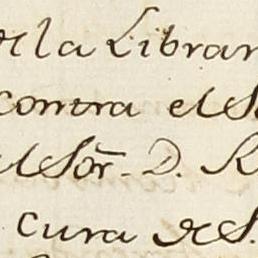 de la Libran
contra el S
el Sor. D. R
cura de S.